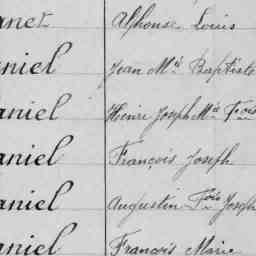 anet Alphonse Louis
aniel Jean Mie Baptiste
aniel Henri Joseph Mie Fois
aniel François Joseph
aniel Augustin Fois Joseph
aniel François Marie